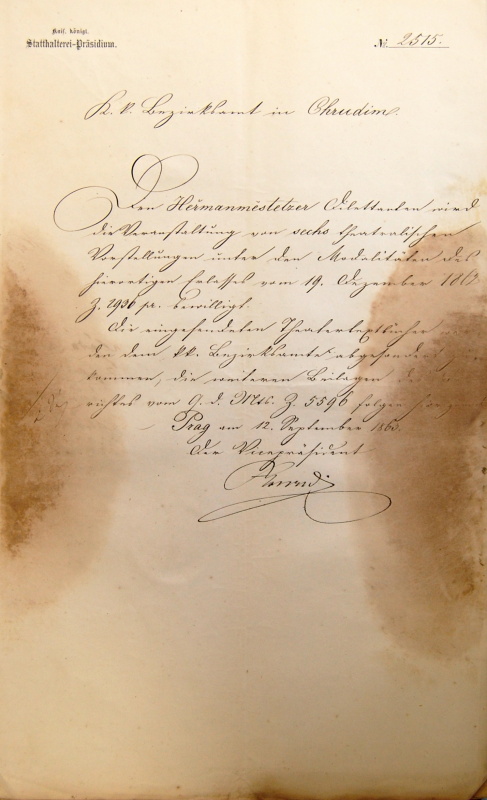 Kais. königl.
Statthalterei-Präsidium.
№ 2515.
K. k. Bezirksamt in Chrudim.
Den Heřmanměstetzer Dilettanten wird
die Veranstaltung von sechs theatralischen
Vorstellungen unter den Modalitäten des
hierortigen Erlasses vom 19. Dezember 186
Z. 2920 pr. bewilligt.
Die eingesendeten Theatertextbücher
den dem kk. Bezirksamte abgesondert
kommen, die weiteren Beilagen des
richtes vom 9. d. Mts. Z. 5596 folgen
Prag am 12. September 1863.
Der Vicepräsident